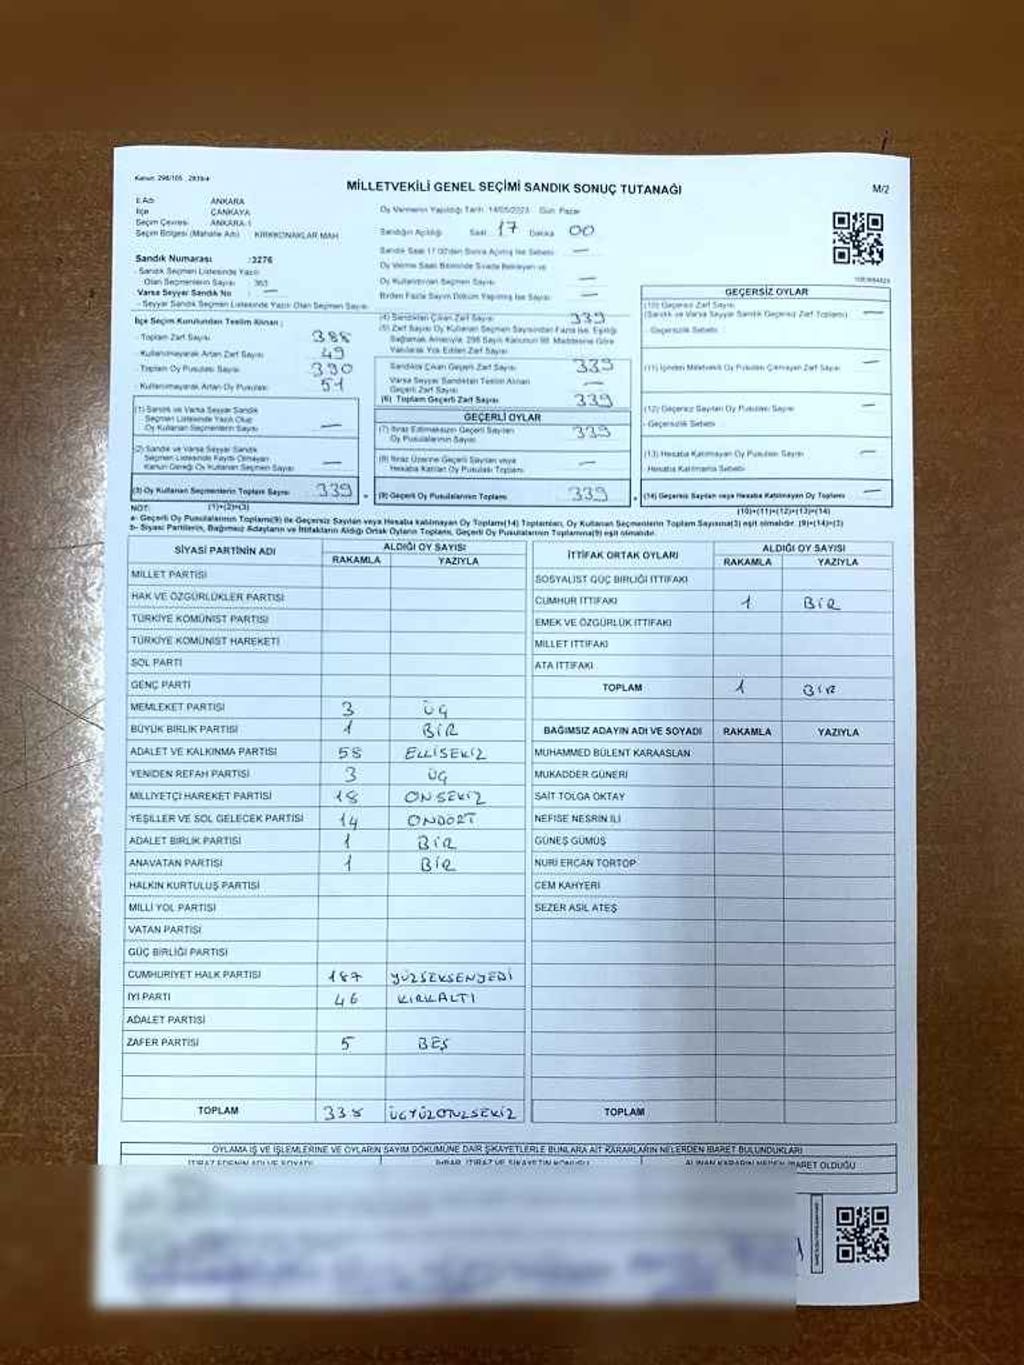 Kanun: 298/105 , 2839/4
MİLLETVEKİLİ GENEL SEÇİMİ SANDIK SONUÇ TUTANAĞI
M/2
İl Adı ANKARA
İlçe ÇANKAYA
Seçim Çevresi ANKARA-1
Seçim Bölgesi (Mahalle Adı) KIRKKONAKLAR MAH
Oy Vermenin Yapıldığı Tarih: 14/05/2023 Gün: Pazar
Sandığın Açıldığı Saat 17 Dakika 00
Sandık Saat 17:00'den Sonra Açılmış İse Sebebi —
Oy Verme Saati Bitiminde Sırada Bekleyen ve
Oy Kullandırılan Seçmen Sayısı —
Birden Fazla Sayım Döküm Yapılmış İse Sayısı —
Sandık Numarası :3276
- Sandık Seçmen Listesinde Yazılı
Olan Seçmenlerin Sayısı 363
Varsa Seyyar Sandık No —
- Seyyar Sandık Seçmen Listesinde Yazılı Olan Seçmen Sayısı
İlçe Seçim Kurulundan Teslim Alınan :
- Toplam Zarf Sayısı 388
- Kullanılmayarak Artan Zarf Sayısı 49
Toplam Oy Pusulası Sayısı 390
- Kullanılmayarak Artan Oy Pusulası 51
(1) Sandık ve Varsa Seyyar Sandık
Seçmen Listesinde Yazılı Olup
Oy Kullanan Seçmenlerin Sayısı —
(2) Sandık ve Varsa Seyyar Sandık
Seçmen Listesinde Kayıtlı Olmayan
Kanun Gereği Oy Kullanan Seçmen Sayısı —
(3) Oy Kullanan Seçmenlerin Toplam Sayısı 339
(1)+(2)=(3)
(4) Sandıktan Çıkan Zarf Sayısı 339
(5) Zarf Sayısı Oy Kullanan Seçmen Sayısından Fazla İse, Eşitliği
Sağlamak Amacıyla, 298 Sayılı Kanunun 98. Maddesine Göre
Yakılarak Yok Edilen Zarf Sayısı
Sandıkta Çıkan Geçerli Zarf Sayısı 339
Varsa Seyyar Sandıktan Teslim Alınan
Geçerli Zarf Sayısı —
(6) Toplam Geçerli Zarf Sayısı 339
GEÇERLİ OYLAR
(7) İtiraz Edilmeksizin Geçerli Sayılan
Oy Pusulalarının Sayısı 339
(8) İtiraz Üzerine Geçerli Sayılan veya
Hesaba Katılan Oy Pusulası Toplamı —
(9) Geçerli Oy Pusulalarının Toplamı 339
GEÇERSİZ OYLAR
(10) Geçersiz Zarf Sayısı
(Sandık ve Varsa Seyyar Sandık Geçersiz Zarf Toplamı) —
- Geçersizlik Sebebi
(11) İçinden Milletvekili Oy Pusulası Çıkmayan Zarf Sayısı —
(12) Geçersiz Sayılan Oy Pusulası Sayısı —
- Geçersizlik Sebebi
(13) Hesaba Katılmayan Oy Pusulası Sayısı —
- Hesaba Katılmama Sebebi
(14) Geçersiz Sayılan veya Hesaba Katılmayan Oy Toplamı —
(10)+(11)+(12)+(13)=(14)
NOT:
a- Geçerli Oy Pusulalarının Toplamı(9) ile Geçersiz Sayılan veya Hesaba katılmayan Oy Toplamı(14) Toplamları, Oy Kullanan Seçmenlerin Toplam Sayısına(3) eşit olmalıdır. (9)+(14)=(3)
b- Siyasi Partilerin, Bağımsız Adayların ve İttifakların Aldığı Ortak Oyların Toplamı, Geçerli Oy Pusulalarının Toplamına(9) eşit olmalıdır.
SİYASİ PARTİNİN ADI ALDIĞI OY SAYISI
RAKAMLA YAZIYLA
MİLLET PARTİSİ
HAK VE ÖZGÜRLÜKLER PARTİSİ
TÜRKİYE KOMÜNİST PARTİSİ
TÜRKİYE KOMÜNİST HAREKETİ
SOL PARTİ
GENÇ PARTİ
MEMLEKET PARTİSİ 3 ÜÇ
BÜYÜK BİRLİK PARTİSİ 1 BİR
ADALET VE KALKINMA PARTİSİ 58 ELLİSEKİZ
YENİDEN REFAH PARTİSİ 3 ÜÇ
MİLLİYETÇİ HAREKET PARTİSİ 18 ONSEKİZ
YEŞİLLER VE SOL GELECEK PARTİSİ 14 ONDÖRT
ADALET BİRLİK PARTİSİ 1 BİR
ANAVATAN PARTİSİ 1 BİR
HALKIN KURTULUŞ PARTİSİ
MİLLİ YOL PARTİSİ
VATAN PARTİSİ
GÜÇ BİRLİĞİ PARTİSİ
CUMHURİYET HALK PARTİSİ 187 YÜZSEKSENYEDİ
İYİ PARTİ 46 KIRKALTI
ADALET PARTİSİ
ZAFER PARTİSİ 5 BEŞ
TOPLAM 338 ÜÇYÜZOTUZSEKİZ
İTTİFAK ORTAK OYLARI ALDIĞI OY SAYISI
RAKAMLA YAZIYLA
SOSYALİST GÜÇ BİRLİĞİ İTTİFAKI
CUMHUR İTTİFAKI 1 BİR
EMEK VE ÖZGÜRLÜK İTTİFAKI
MİLLET İTTİFAKI
ATA İTTİFAKI
TOPLAM 1 BİR
BAĞIMSIZ ADAYIN ADI VE SOYADI RAKAMLA YAZIYLA
MUHAMMED BÜLENT KARAASLAN
MUKADDER GÜNERİ
SAİT TOLGA OKTAY
NEFİSE NESRİN İLİ
GÜNEŞ GÜMÜŞ
NURİ ERCAN TORTOP
CEM KAHYERİ
SEZER ASİL ATEŞ
TOPLAM
OYLAMA İŞ VE İŞLEMLERİNE VE OYLARIN SAYIM DÖKÜMÜNE DAİR ŞİKAYETLERLE BUNLARA AİT KARARLARIN NELERDEN İBARET BULUNDUKLARI
İTİRAZ EDENİN ADI VE SOYADI İHBAR, İTİRAZ VE ŞİKAYETİN KONUSU ALINAN KARARIN NEDEN İBARET OLDUĞU